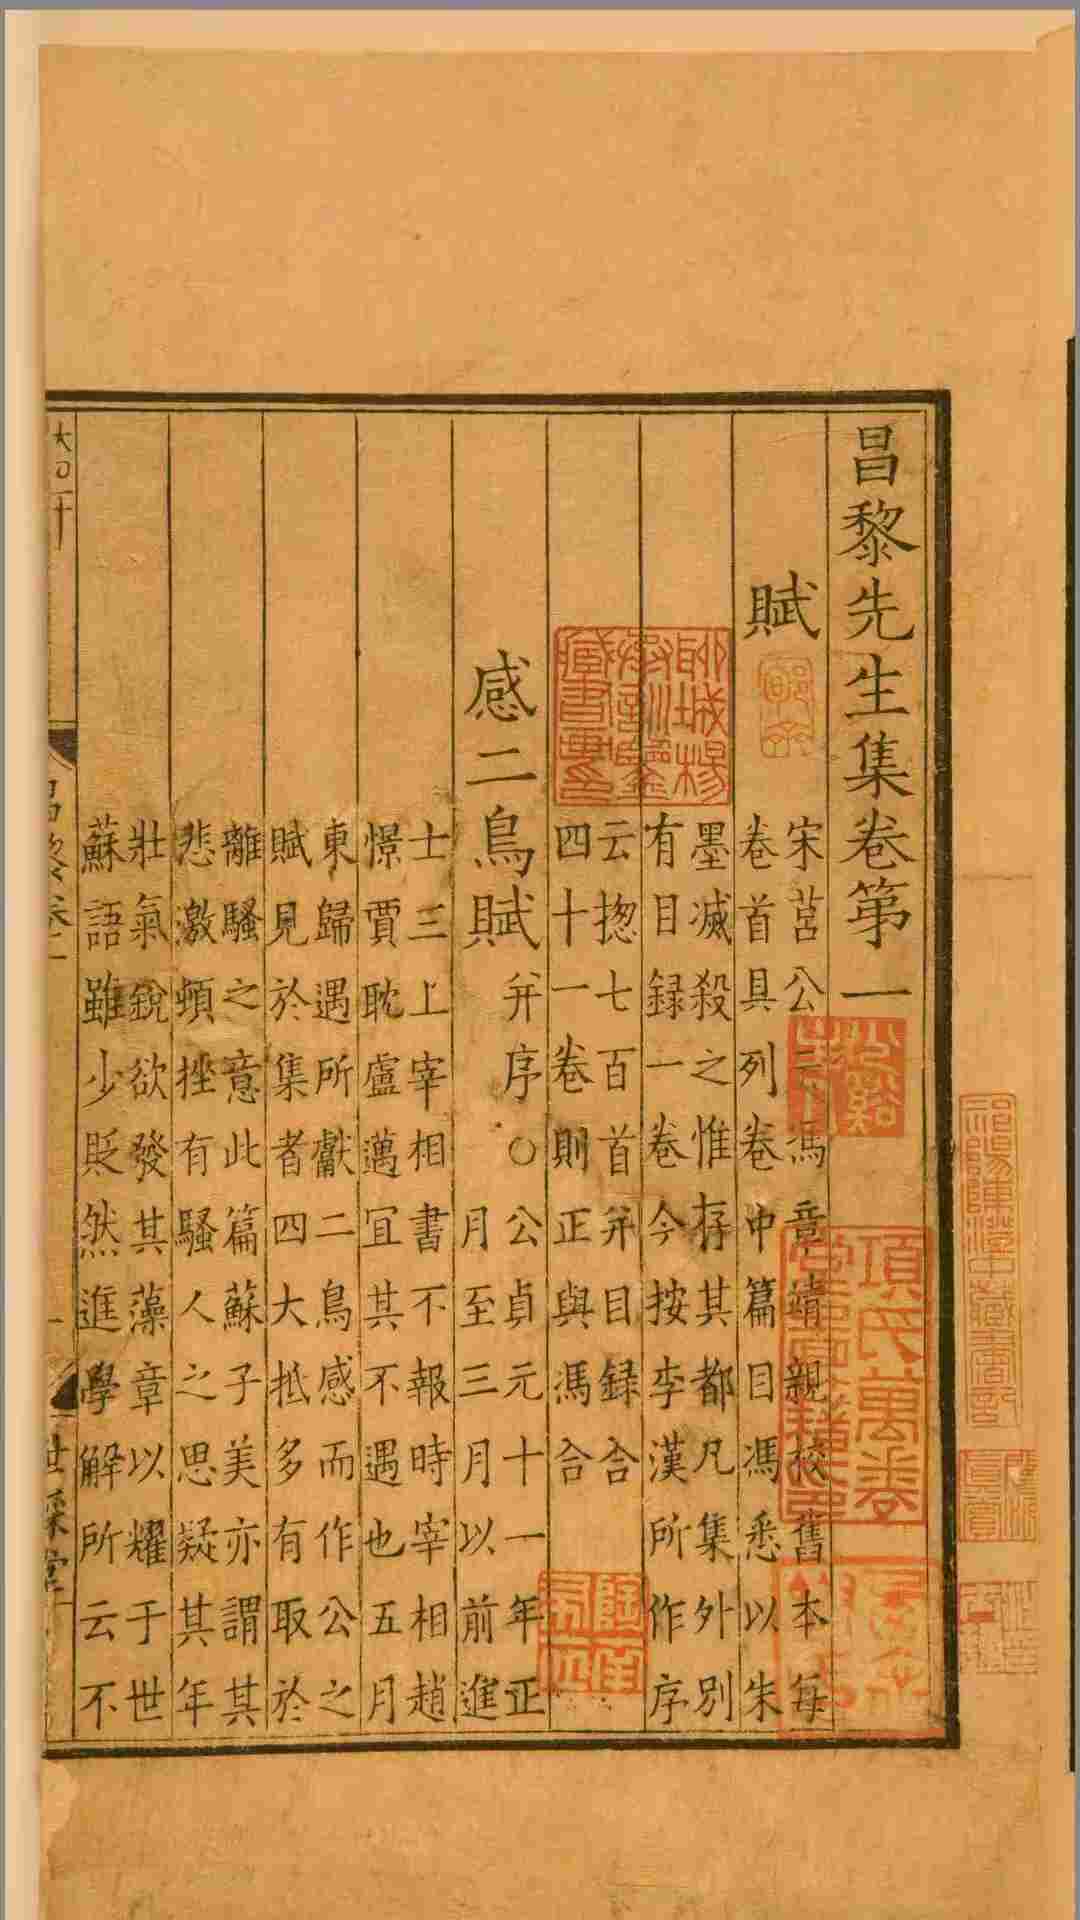 昌黎先生集卷第一
賦
宋莒公云馮章靖親校舊本每
卷首具列卷中篇目馮悉以朱
墨滅殺之惟存其都凡集外別
有目録一卷今按李漢所作序
云揔七百首并目録合
四十一卷則正與馮合
感二鳥賦
并序○公貞元十一年正
月至三月以前進
士三上宰相書不報時宰相趙
憬賈耽盧邁冝其不遇也五月
東歸遇所獻二鳥感而作公之
賦見於集者四大抵多有取於
離騷之意此篇蘇子美亦謂其
悲激頓挫有騷人之思疑其年
壯氣銳欲發其藻章以耀于世
蘇語雖少貶然進學解所云不
世綵堂
郇齋
聊城楊承訓鑒藏書畫印
項氏萬卷堂圖籍印
祁陽陳澄中藏書記